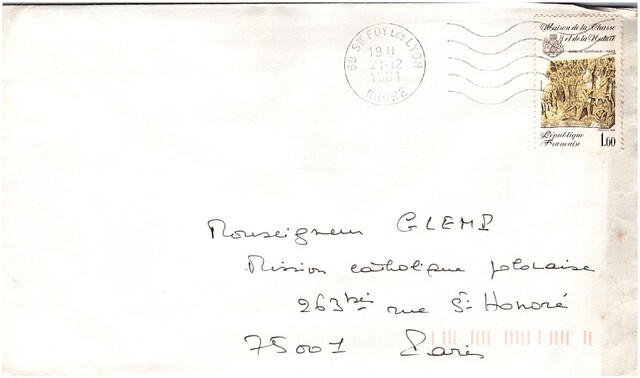 69 STE FOY LES LYON
19 H
21-12
1981
RHONE
Maison de la Chasse
et de la Nature
République
Française
1.60
Monseigneur GLEMP
Mission catholique polonaise
263 bis rue St Honoré
75001 Paris